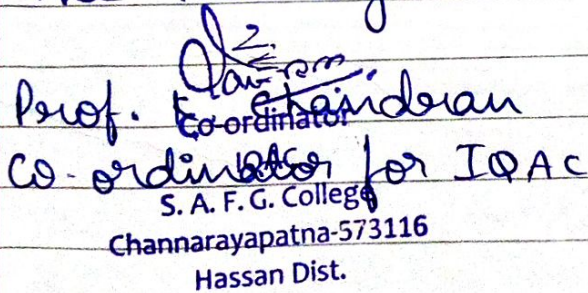 Prof. K. Chandran
Co-ordinator
Co-ordinator for IQAC
IQAC
S. A. F. G. College
Channarayapatna-573116
Hassan Dist.